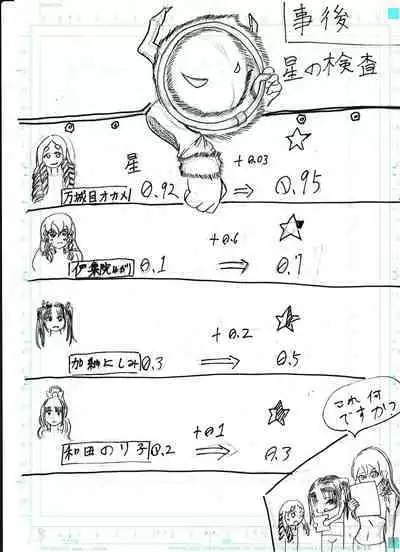 事後
星の検査
星
+0.03
万城目オカメ 0.92 ⇒ 0.95
+0.6
伊集院 0.1 ⇒ 0.7
+0.2
加納よしみ 0.3 ⇒ 0.5
+0.1
和田のり子 0.2 ⇒ 0.3
これ何
ですか?